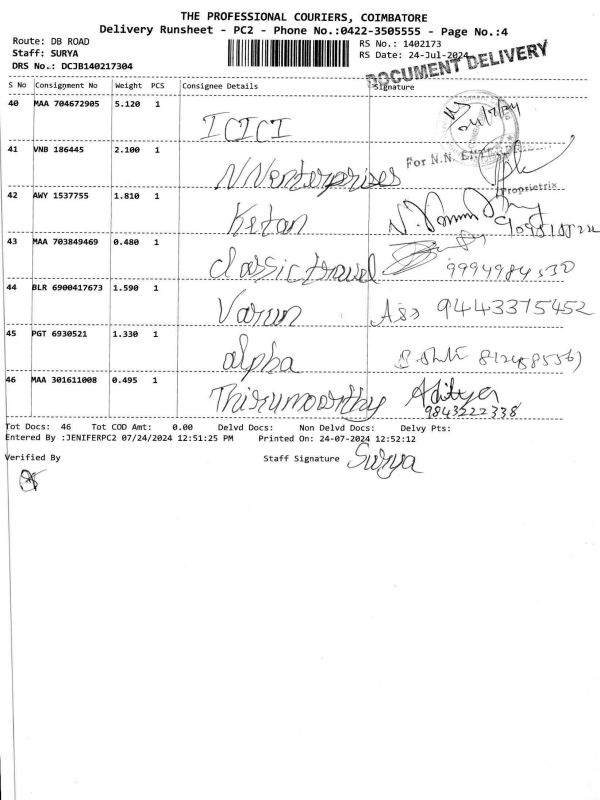 THE PROFESSIONAL COURIERS, COIMBATORE
Delivery Runsheet - PC2 - Phone No.:0422-3505555 - Page No.:4
Route: DB ROAD RS No.: 1402173
Staff: SURYA RS Date: 24-Jul-2024
DRS No.: DCJB140217304
DOCUMENT DELIVERY
S No Consignment No Weight PCS Consignee Details Signature
40 MAA 704672905 5.120 1 ICICI
41 VNB 186445 2.100 1 NNenterprises For N.N.
Proprietrix
42 AWY 1537755 1.810 1 Ketan
43 MAA 703849469 0.480 1 classic travel
44 BLR 6900417673 1.590 1 Varun Ass 9443375452
45 PGT 6930521 1.330 1 alpha
46 MAA 301611008 0.495 1 Thirumoorthy Aditya
9843222338
Tot Docs: 46 Tot COD Amt: 0.00 Delvd Docs: Non Delvd Docs: Delvy Pts:
Entered By :JENIFERPC2 07/24/2024 12:51:25 PM Printed On: 24-07-2024 12:52:12
Verified By Staff Signature Surya